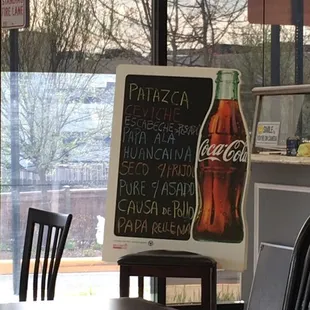 PATAZCA
CEVICHE
ESCABECHE
PAPA ALA
HUANCAINA
SECO Y FRIJO
PURE Y ASADO
CAUSA DE POLLO
PAPA RELLENA
Coca-Cola